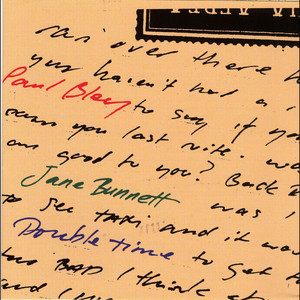 over there
you haven't had a
Paul Bley to say if you
you last nite. wa
am good to you? Back
Jane Bunnett was I
to see TAXI and it wa
Double time to get
this BAD I think
and I